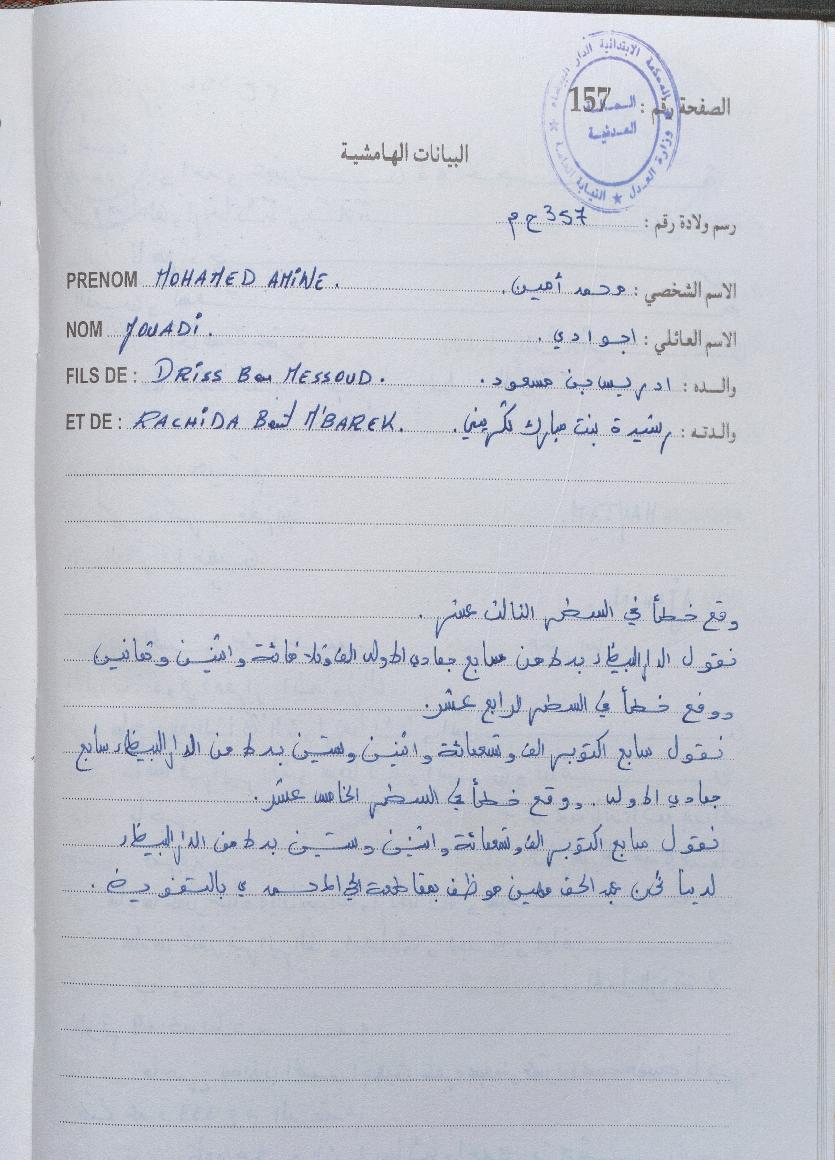 المحكمة الابتدائية الدار البيضاء
وزارة العدل ★ النيابة العامة
الحالة
المدنية
الصفحة رقم : 157
البيانات الهامشية
رسم ولادة رقم : 357 ح م
PRENOM MOHAMED AMINE. الاسم الشخصي : محمد أمين.
NOM JOUADI. الاسم العائلي : اجوادي.
FILS DE : DRISS Ben MESSOUD. والده : ادريس بن مسعود.
ET DE : RACHIDA Bent M'BAREK. والدته : رشيدة بنت مبارك
وقع خطأ في السطر الثالث عشر.
نقول الدار البيضاء بدلا من سابع جمادى الاولى الف وثلاثمائة واثنين وثمانين
ووقع خطأ في السطر الرابع عشر.
نقول سابع اكتوبر الف وتسعمائة واثنين وستين بدلا من الدار البيضاء سابع
جمادى الاولى. ووقع خطأ في السطر الخامس عشر.
نقول سابع اكتوبر الف وتسعمائة واثنين وستين بدلا من الدار البيضاء
لدينا نحن عبد الحق موظف بمقاطعة الحي المحمدي بالتفويض.